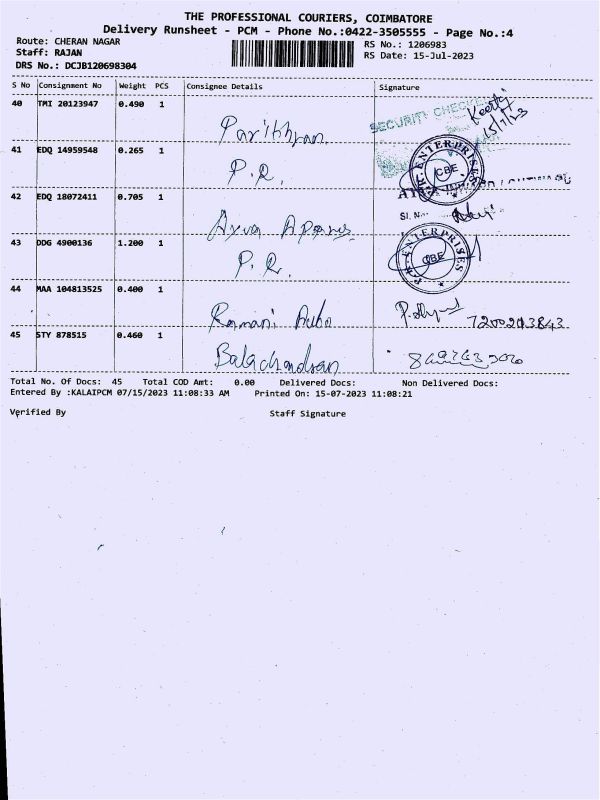 THE PROFESSIONAL COURIERS, COIMBATORE
Delivery Runsheet - PCM - Phone No.:0422-3505555 - Page No.:4
Route: CHERAN NAGAR
RS No.: 1206983
Staff: RAJAN
RS Date: 15-Jul-2023
DRS No.: DCJB120698304
S No Consignment No Weight PCS Consignee Details Signature
40 TMI 20123947 0.490 1
SECURITY CHECKED
15/7/23
41 EDQ 14959548 0.265 1 P.R.
ENTERPRISES
CBE
42 EDQ 18072411 0.705 1
Sl. No.
43 DDG 4900136 1.200 1 P.R.
ENTERPRISES
CBE
44 MAA 104813525 0.400 1 Ramani Auto
7200293843
45 STY 878515 0.460 1 Balachandran
Total No. Of Docs: 45 Total COD Amt: 0.00 Delivered Docs: Non Delivered Docs:
Entered By :KALAIPCM 07/15/2023 11:08:33 AM Printed On: 15-07-2023 11:08:21
Verified By Staff Signature